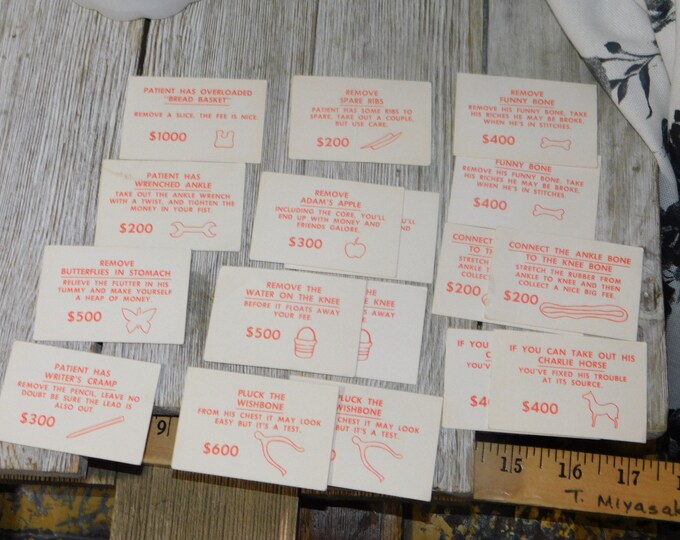 PATIENT HAS OVERLOADED
"BREAD BASKET"
REMOVE A SLICE. THE FEE IS NICE.
$1000
REMOVE
SPARE RIBS
PATIENT HAS SOME RIBS TO
SPARE, TAKE OUT A COUPLE,
BUT USE CARE.
$200
REMOVE
FUNNY BONE
REMOVE HIS FUNNY BONE, TAKE
HIS RICHES HE MAY BE BROKE,
WHEN HE'S IN STITCHES.
$400
PATIENT HAS
WRENCHED ANKLE
TAKE OUT THE ANKLE WRENCH
WITH A TWIST, AND TIGHTEN THE
MONEY IN YOUR FIST.
$200
REMOVE
ADAM'S APPLE
INCLUDING THE CORE, YOU'LL
END UP WITH MONEY AND
FRIENDS GALORE.
$300
FUNNY BONE
REMOVE HIS FUNNY BONE, TAKE
HIS RICHES HE MAY BE BROKE,
WHEN HE'S IN STITCHES.
$400
REMOVE
BUTTERFLIES IN STOMACH
RELIEVE THE FLUTTER IN HIS
TUMMY AND MAKE YOURSELF
A HEAP OF MONEY
$500
REMOVE THE
WATER ON THE KNEE
BEFORE IT FLOATS AWAY
YOUR FEE.
$500
CONNECT
TO
STRETCH
ANKLE TO
COLLECT
$200
CONNECT THE ANKLE BONE
TO THE KNEE BONE
STRETCH THE RUBBER FROM
ANKLE TO KNEE AND THEN
COLLECT A NICE BIG FEE.
$200
PATIENT HAS
WRITER'S CRAMP
REMOVE THE PENCIL, LEAVE NO
DOUBT BE SURE THE LEAD IS
ALSO OUT.
$300
PLUCK THE
WISHBONE
FROM HIS CHEST IT MAY LOOK
EASY BUT IT'S A TEST.
$600
PLUCK THE
WISHBONE
CHEST IT MAY LOOK
IT'S A TEST.
IF YOU
CH
YOU'VE
IF YOU CAN TAKE OUT HIS
CHARLIE HORSE
YOU'VE FIXED HIS TROUBLE
AT ITS SOURCE.
$400
9
15 16 17
T. Miyasak